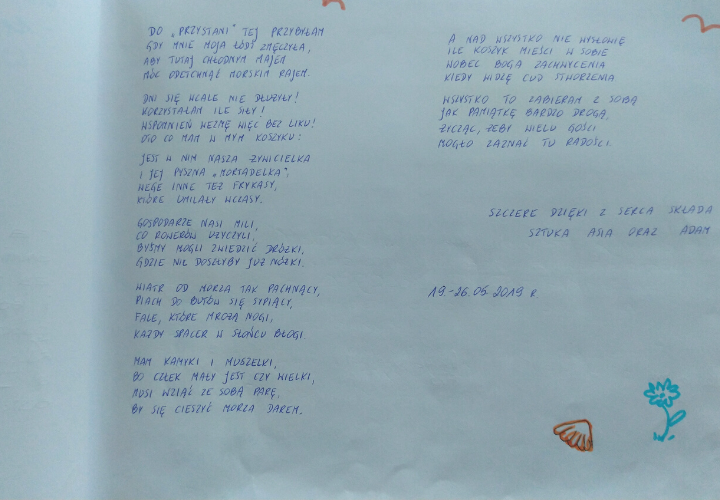 DO „PRZYSTANI" TEJ PRZYBYŁAM
GDY MNIE MOJA ŁÓDŹ ZMĘCZYŁA,
ABY TUTAJ CHŁODNYM MAJEM
MÓC ODETCHNĄĆ MORSKIM RAJEM.
DNI SIĘ WCALE NIE DŁUŻYŁY!
KORZYSTAŁAM ILE SIŁY!
WSPOMNIEŃ WEZMĘ WIĘC BEZ LIKU!
OTO CO MAM W MYM KOSZYKU:
JEST W NIM NASZA ŻYWICIELKA
I JEJ PYSZNA „MORTADELKA",
WEGE INNE TEŻ FRYKASY,
KTÓRE UMILAŁY WCZASY.
GOSPODARZE NASI MILI,
CO ROWERÓW UŻYCZYLI,
BYŚMY MOGLI ZWIEDZIĆ DRÓŻKI,
GDZIE NIE DOSZŁYBY JUŻ NÓŻKI.
WIATR OD MORZA TAK PACHNĄCY,
PIACH DO BUTÓW SIĘ SYPIĄCY,
FALE, KTÓRE MROŻĄ NOGI,
KAŻDY SPACER W SŁOŃCU BŁOGI.
MAM KAMYKI I MUSZELKI,
BO CZŁEK MAŁY JEST CZY WIELKI,
MUSI WZIĄĆ ZE SOBĄ PARĘ,
BY SIĘ CIESZYĆ MORZA DAREM.
A NAD WSZYSTKO NIE WYSŁOWIĘ
ILE KOSZYK MIEŚCI W SOBIE
WOBEC BOGA ZACHWYCENIA
KIEDY WIDZĘ CUD STWORZENIA
WSZYSTKO TO ZABIERAM Z SOBĄ
JAK PAMIĄTKĘ BARDZO DROGĄ,
ŻYCZĄC, ŻEBY WIELU GOŚCI
MOGŁO ZAZNAĆ TU RADOŚCI.
SZCZERE DZIĘKI Z SERCA SKŁADA
SZTUKA ASIA ORAZ ADAM
19.-26.05.2019 r.